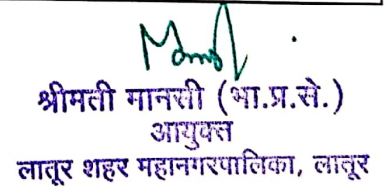 श्रीमती मानसी (भा.प्र.से.)
आयुक्त
लातूर शहर महानगरपालिका, लातूर